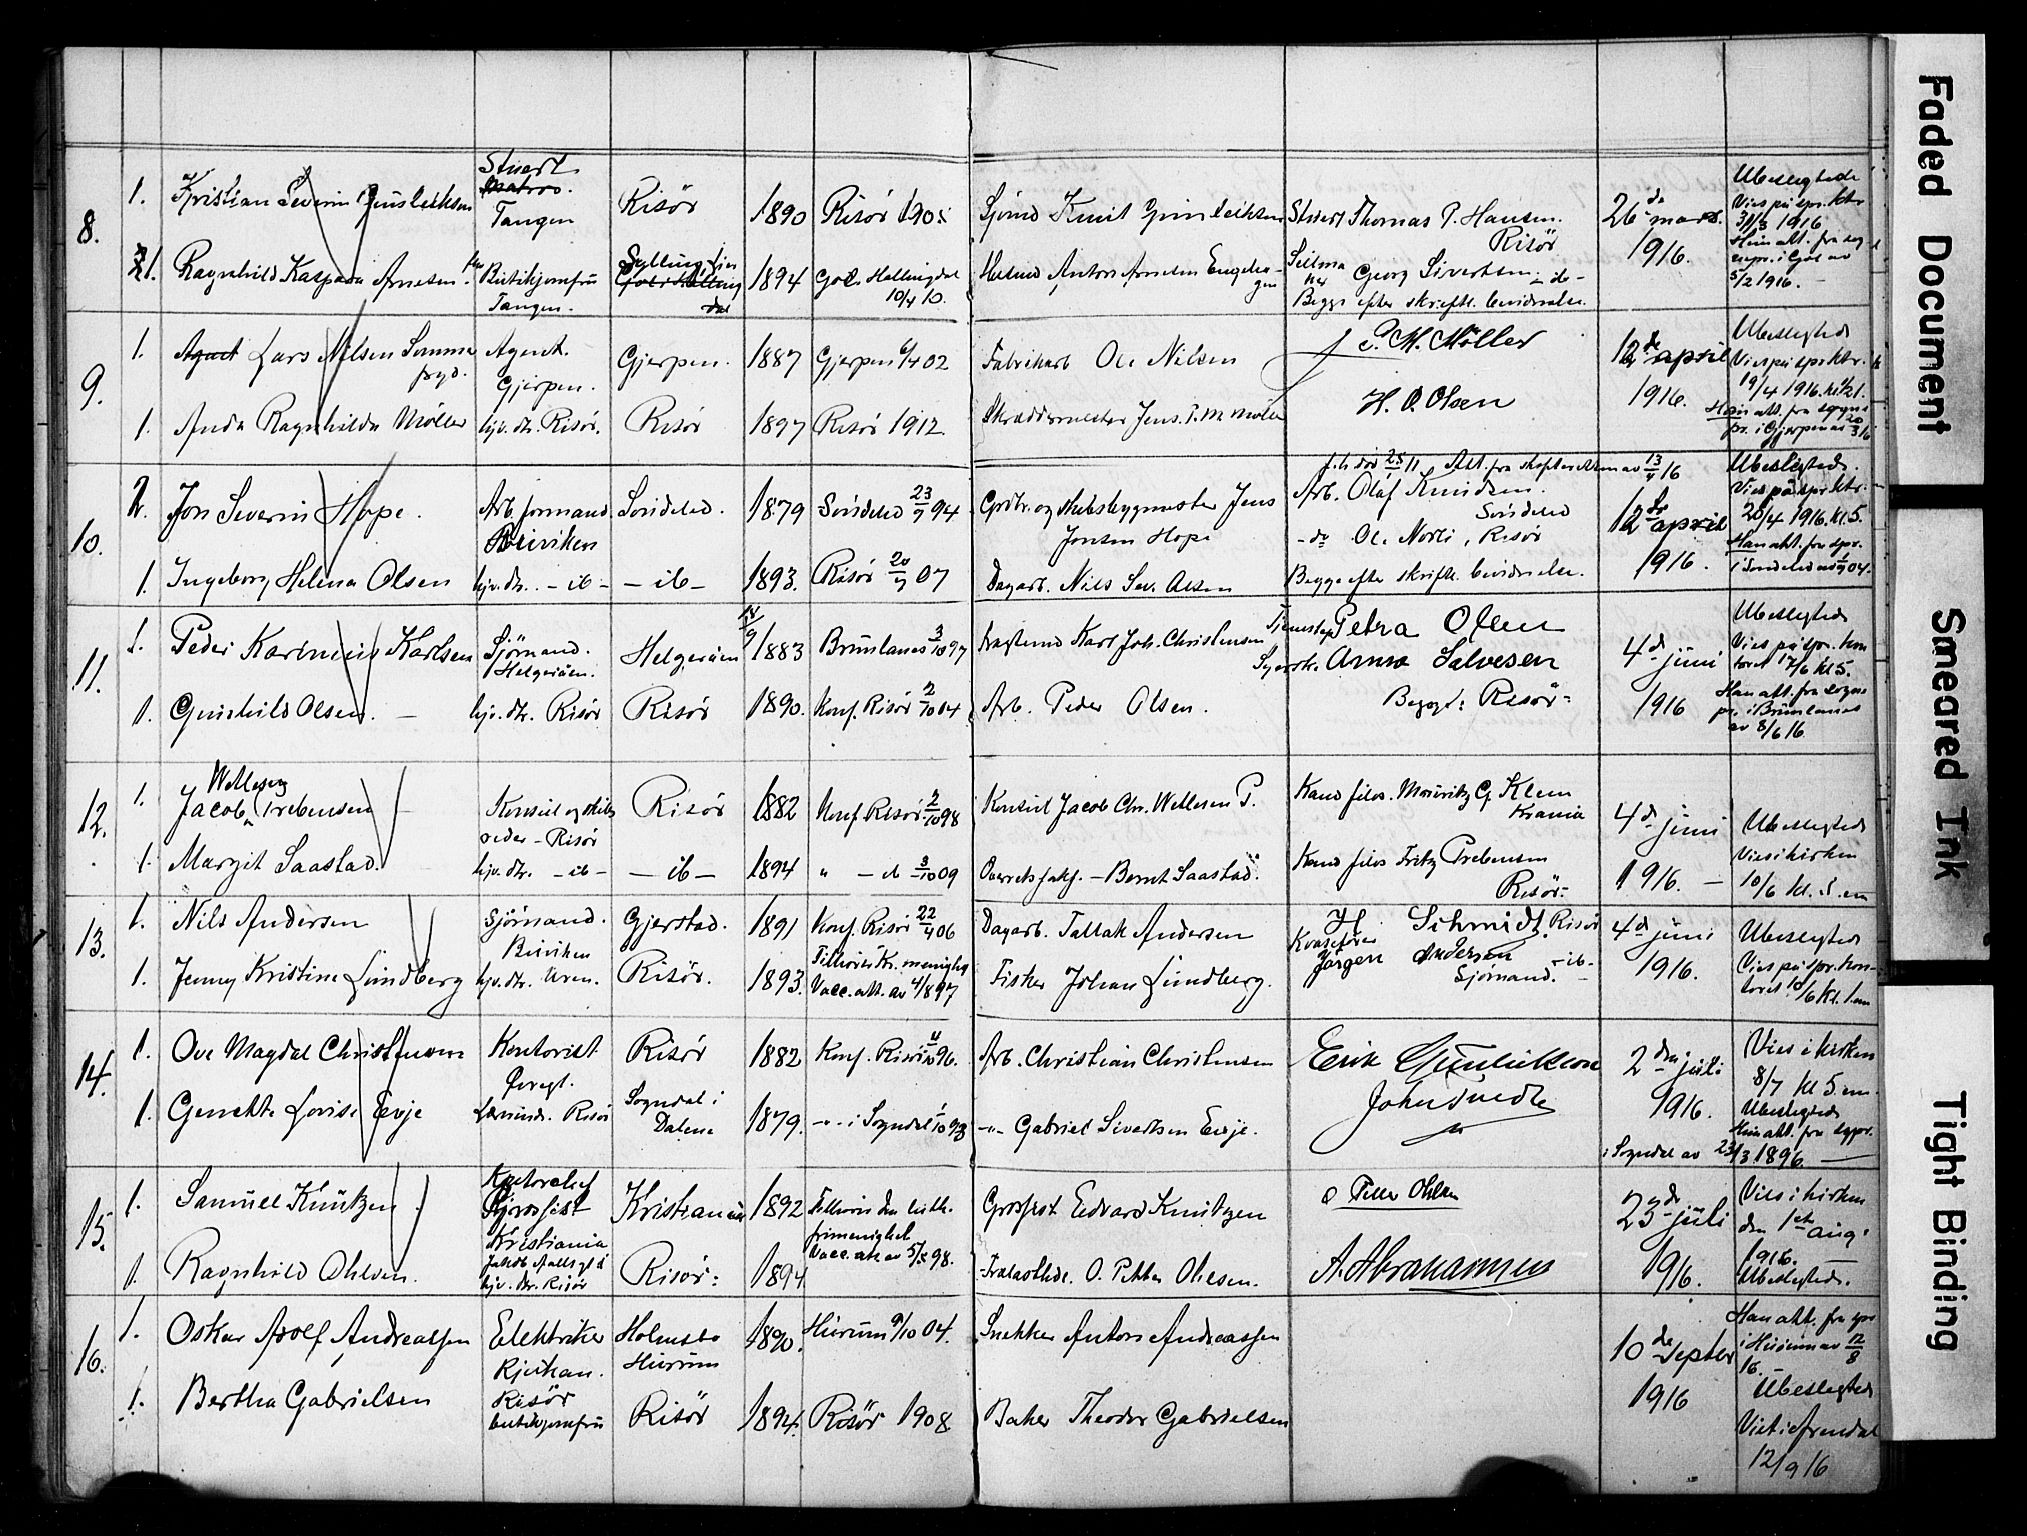 8.
1. Kristian Severin Gunleiksen
Stuert
Matros.
Tangen
Risör
1890
Risör 1905
Sjömd Knut Gunleiksen
Stuert Thomas P. Hansen.
Risör
26de mars.
1916.
Ubeslegtede
Vies på spr.ktr
31/3 1916
Hun att. fra sog
nepr. i Gol av
5/2 1916.
1. Ragnhild Kaspara Arnesen.
Butikjomfru
Tangen.
1894
Gol Hallingdal
10/4 10.
Helmd Anton Arnesen Engelsr-
gen
Georg Sivertsen -do-
Begge efter skriftl. bevidnelse.
9.
1. Agent Lars Nilsen Somme
fryd.
Agent.
Gjerpen.
Gjerpen.
1887
Gjerpen 6/4 02
Fabrikarb Ole Nilsen
P. M. Möller
12de april
1916.
Ubeslegted
Vies på sprktr.
19/4 1916. kl. 1/2 1.
Han att. fra sogne
pr. i Gjerpen av 20/3 16
1. Anda Ragnhilda Möller
hjv. dtr. Risör.
Risör
1897
Risör 1912.
Skræddermester Jens P. M. Möller
H. O. Olsen
10.
2. Jon Severin Hope.
Arb. formand.
Buviken
Söndeled.
1879
Söndeled 23/9 94
Grdbr. og skibsbyggmester Jens
Jonsen Hope
f. h. död 25/11 Att. fra skifteretten av 13/4 16
Arb. Olaf Knudsen.
Söndeled
-do Ole Norli, Risör
Begge efter skriftl. bevidnelse.
12de april
1916.
Ubeslegted.
Vies på spr.ktr.
20/4 1916. kl. 5.
Han att. fra spr.
i Söndeled av 04.
1. Ingeborg Helena Olsen
hjv. dtr. - ib -
- ib -
1893.
Risör 20/9 07
Dagarb. Nils Sev. Olsen
11.
1. Peder Karinius Karlsen
Sjömand.
Helgeråen.
Helgeråen
14/9 1883
Brunlanes 3/10 97
Fragtemd Karl Joh. Christensen
Tjenestep Petra Olsen
Syerske Anna Salvesen
Begge: Risör
4de juni
1916
Ubeslegted
Vies på spr. kon
toret 17/6 kl 5.
Han att. fra sogne
pr. i Brunlanes
av 8/6 16
1. Gunhild Olsen. -
hjv. dtr. Risör
Risör
1890.
Konf. Risör 2/10 04
Arb. Peder Olsen.
12.
1. Jacob Prebensen
Wetlesen
Konsul og skibs
reder - Risör
Risör
1882
Konf Risör 2/10 98
Konsul Jacob Chr. Wetlesen P.
Kand filos. Mouritz G. Klem
Krania
4de juni
1916. -
Ubeslegted
Vies i kirken
10/6 kl. 5 em
1. Margit Saastad.
hjv. dtr. - ib -
- ib -
1894
" - ib 3/10 09
Overretssakf. - Bernt Saastad.
Kand filos Fritz Prebensen
Risör
13.
1. Nils Andersen
Sjömand.
Buviken
Gjerstad.
1891
Konf. Risör 22/4 06
Dagarb. Tallak Andersen
H Schmidt Risör
4de juni
1916.
Ubeslegted
Vies på spr. kon-
toret 10/6 kl. 1 em
1. Jenny Kristine Lundberg
hjv. dtr. Uren.
Risör.
1893.
Tilhörer Kr. menighet
Vacc. att. av 4/8 97
Fisker Johan Lundberg.
Jörgen Andersen -ib-
Sjömand.
14.
1. Ove Magdal Christensen
Kontorist
Risör
1882
Konf. Risör 4/10 96.
Arb. Christian Christensen
Erik Gunleikson
2den juli
1916.
Vies i kirken
8/7 kl 5 em.
Ubeslegted
Hun att. fra sgpr.
i Sogndal av 23/3 1896. -
1. Genette Lovise Eeje
Lærerinde. Risör
Sogndal i
Dalene
1879.
-"- i Sogndal 1/10 93
-"- Gabriel Sivertsen Eeje.
15.
1. Samuel Knutzen.
Kontorchef
Kristiania
Kristiania
1892
Tilhörer den luth.
frimenighet
Grosfist Edvard Knutzen
O Petter Ohlsen
23de juli
1916.
Vies i kirken
den 1ste aug.
1916. -
Ubeslegted.
1. Ragnhild Ohlsen.
hjv. dtr. Risör
Risör:
1894
Vacc. att. av 5/8 98.
Trælasthdl. O. Petter Ohlsen.
A. Abrahamsen
16.
1. Oskar Adolf Andreassen
Elektriker
Rjukan.
Holmsbo
Hurum
1890.
Hurum 9/10 04.
Snekker Anton Andreassen
10de Septbr
1916
Han att. fra spr
i Hurum av 12/8
16. -
Ubeslegted
Viet i Arendal
12/9 16
1. Bertha Gabrielsen
Risör
butikjomfru
Risör
1894.
Risör 1908.
Baker Theodor Gabrielsen
Faded Document
Smeared Ink
Tight Binding